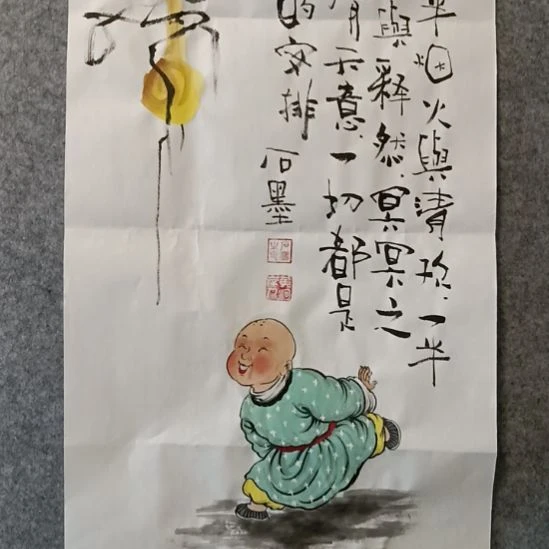 半烟火與清欢.一半
與释然.冥冥之
有天意.一切都是
的安排
石墨